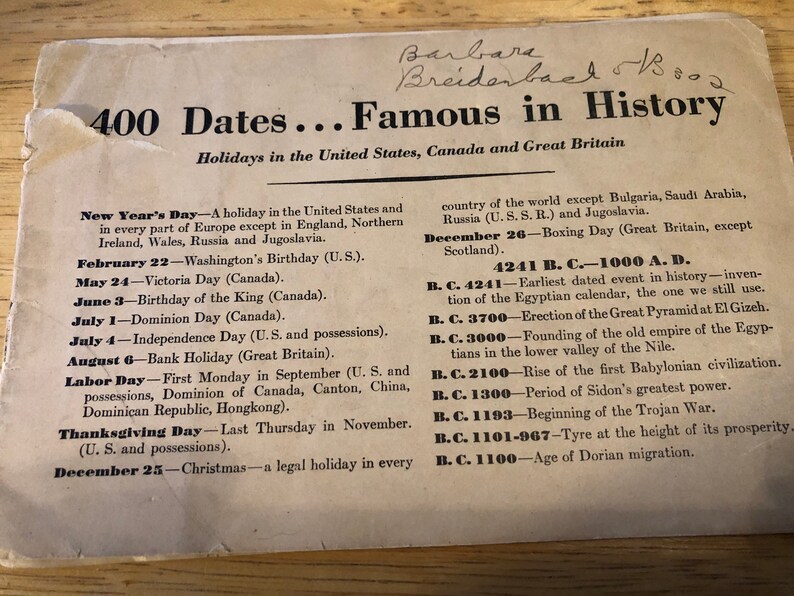 Barbara
Breidenbach 5B 302
400 Dates...Famous in History
Holidays in the United States, Canada and Great Britain
New Year's Day—A holiday in the United States and
in every part of Europe except in England, Northern
Ireland, Wales, Russia and Jugoslavia.
February 22—Washington's Birthday (U. S.).
May 24—Victoria Day (Canada).
June 3—Birthday of the King (Canada).
July 1—Dominion Day (Canada).
July 4—Independence Day (U. S. and possessions).
August 6—Bank Holiday (Great Britain).
Labor Day—First Monday in September (U. S. and
possessions, Dominion of Canada, Canton, China,
Dominican Republic, Hongkong).
Thanksgiving Day—Last Thursday in November.
(U. S. and possessions).
December 25—Christmas—a legal holiday in every
country of the world except Bulgaria, Saudi Arabia,
Russia (U. S. S. R.) and Jugoslavia.
December 26—Boxing Day (Great Britain, except
Scotland).
4241 B. C.—1000 A. D.
B. C. 4241—Earliest dated event in history—inven-
tion of the Egyptian calendar, the one we still use.
B. C. 3700—Erection of the Great Pyramid at El Gizeh.
B. C. 3000—Founding of the old empire of the Egyp-
tians in the lower valley of the Nile.
B. C. 2100—Rise of the first Babylonian civilization.
B. C. 1300—Period of Sidon's greatest power.
B. C. 1193—Beginning of the Trojan War.
B. C. 1101-967—Tyre at the height of its prosperity.
B. C. 1100—Age of Dorian migration.